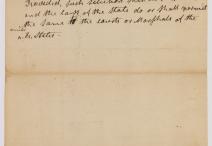 Provided, such
and the laws of the State do or shall permit
the same to the courts or Marshals of the
u. States